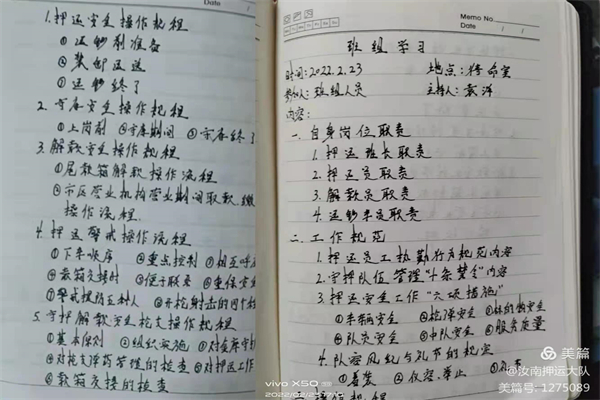 Date
1.押运安全操作规程
①运钞前准备
②装卸运送
③运钞终了
2.守库安全操作规程
①上岗前 ②守库期间 ③守库终了
3.解款安全操作规程
①尾款箱解款操作流程
②市区营业机构营业期间取款、缴
操作流程.
4.押运警戒操作流程
①下车顺序 ②重点控制 ③相互呼应
④款箱交接时 ⑤便于联系 ⑥重保安全
⑦警戒提防五种人 ⑧开枪射击的四个
5.守押解款安全枪支操作规程
①基本原则 ②组织实施 ③对金库守
④对枪支弹药管理的检查 ⑤对押运工作
⑥款箱交接的检查
Memo No.
Date / /
班组学习
时间:2022.2.23 地点:待命室
参加人:班组人员 主持人:袁洋
内容:
一.自身岗位职责
1.押运班长职责
2.押运员职责
3.解款员职责
4.运钞车员职责
二.工作规范
1.押运员工执勤行为规范内容
2.守押队伍管理“十条禁令”内容
3.押运安全工作“六项措施”
①车辆安全 ②枪弹安全 ③标的物安全
④队员安全 ⑤中队安全 ⑥服务质量
4.队容风纪与礼节的规定
①着装 ②仪容、举止 ③礼节
操作规程
vivo X50
2022/02/23
美篇
@汝南押运大队
美篇号: 1275089